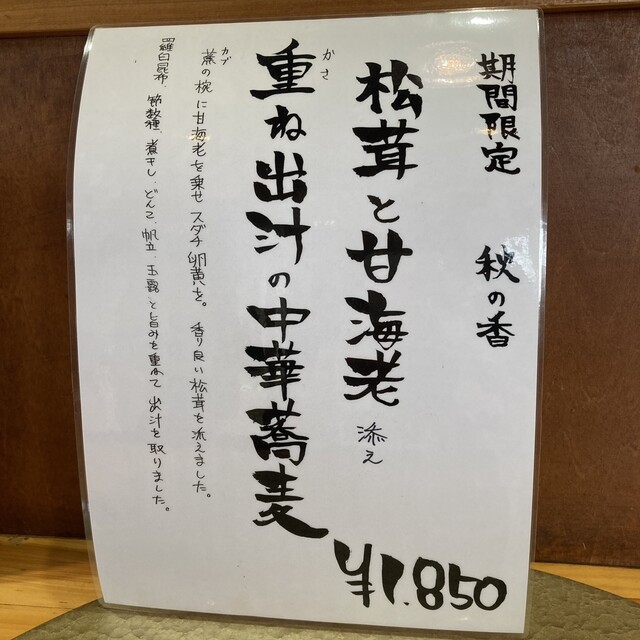 期間限定 秋の香
松茸と甘海老 添え
かさ
重ね出汁の中華蕎麦
¥1.850
カブ
蕪の椀に甘海老を乗せスダチ卵黄を。香り良い松茸を添えました。
羅臼昆布、節数種、煮干し、どんこ、帆立、玉露、と旨みを重ねて出汁を取りました。